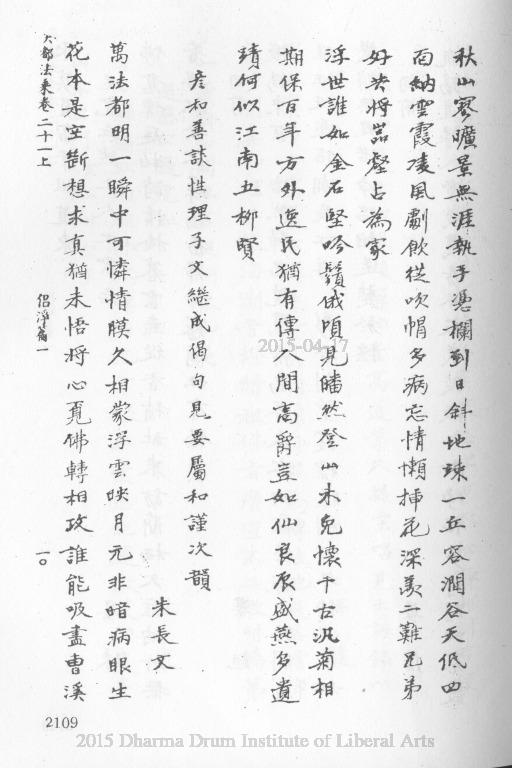 秋山寥曠景無涯執手憑欄到日斜地竦一丘容澗谷天低四
面納雲霞凌風劇飲從吹帽多病忘情懶插花深羡二難兄弟
好共將嵓壑占為家
浮世誰如金石堅吟鬚俄頃見皤然登山未免懷千古汎菊相
期保百年方外逸民猶有傳人間高爵豈如仙良辰盛燕多遺
蹟何似江南五柳賢
彥和善談性理子文繼成偈句見要屬和謹次韻
朱長文
萬法都明一瞬中可憐情膜久相蒙浮雲映月元非暗病眼生
花本是空斷想求真猶未悟將心覓佛轉相攻誰能吸盡曹溪
大部法乘卷二十一上
侶淨篇一
一〇
2109
2015-04-17
2015 Dharma Drum Institute of Liberal Arts